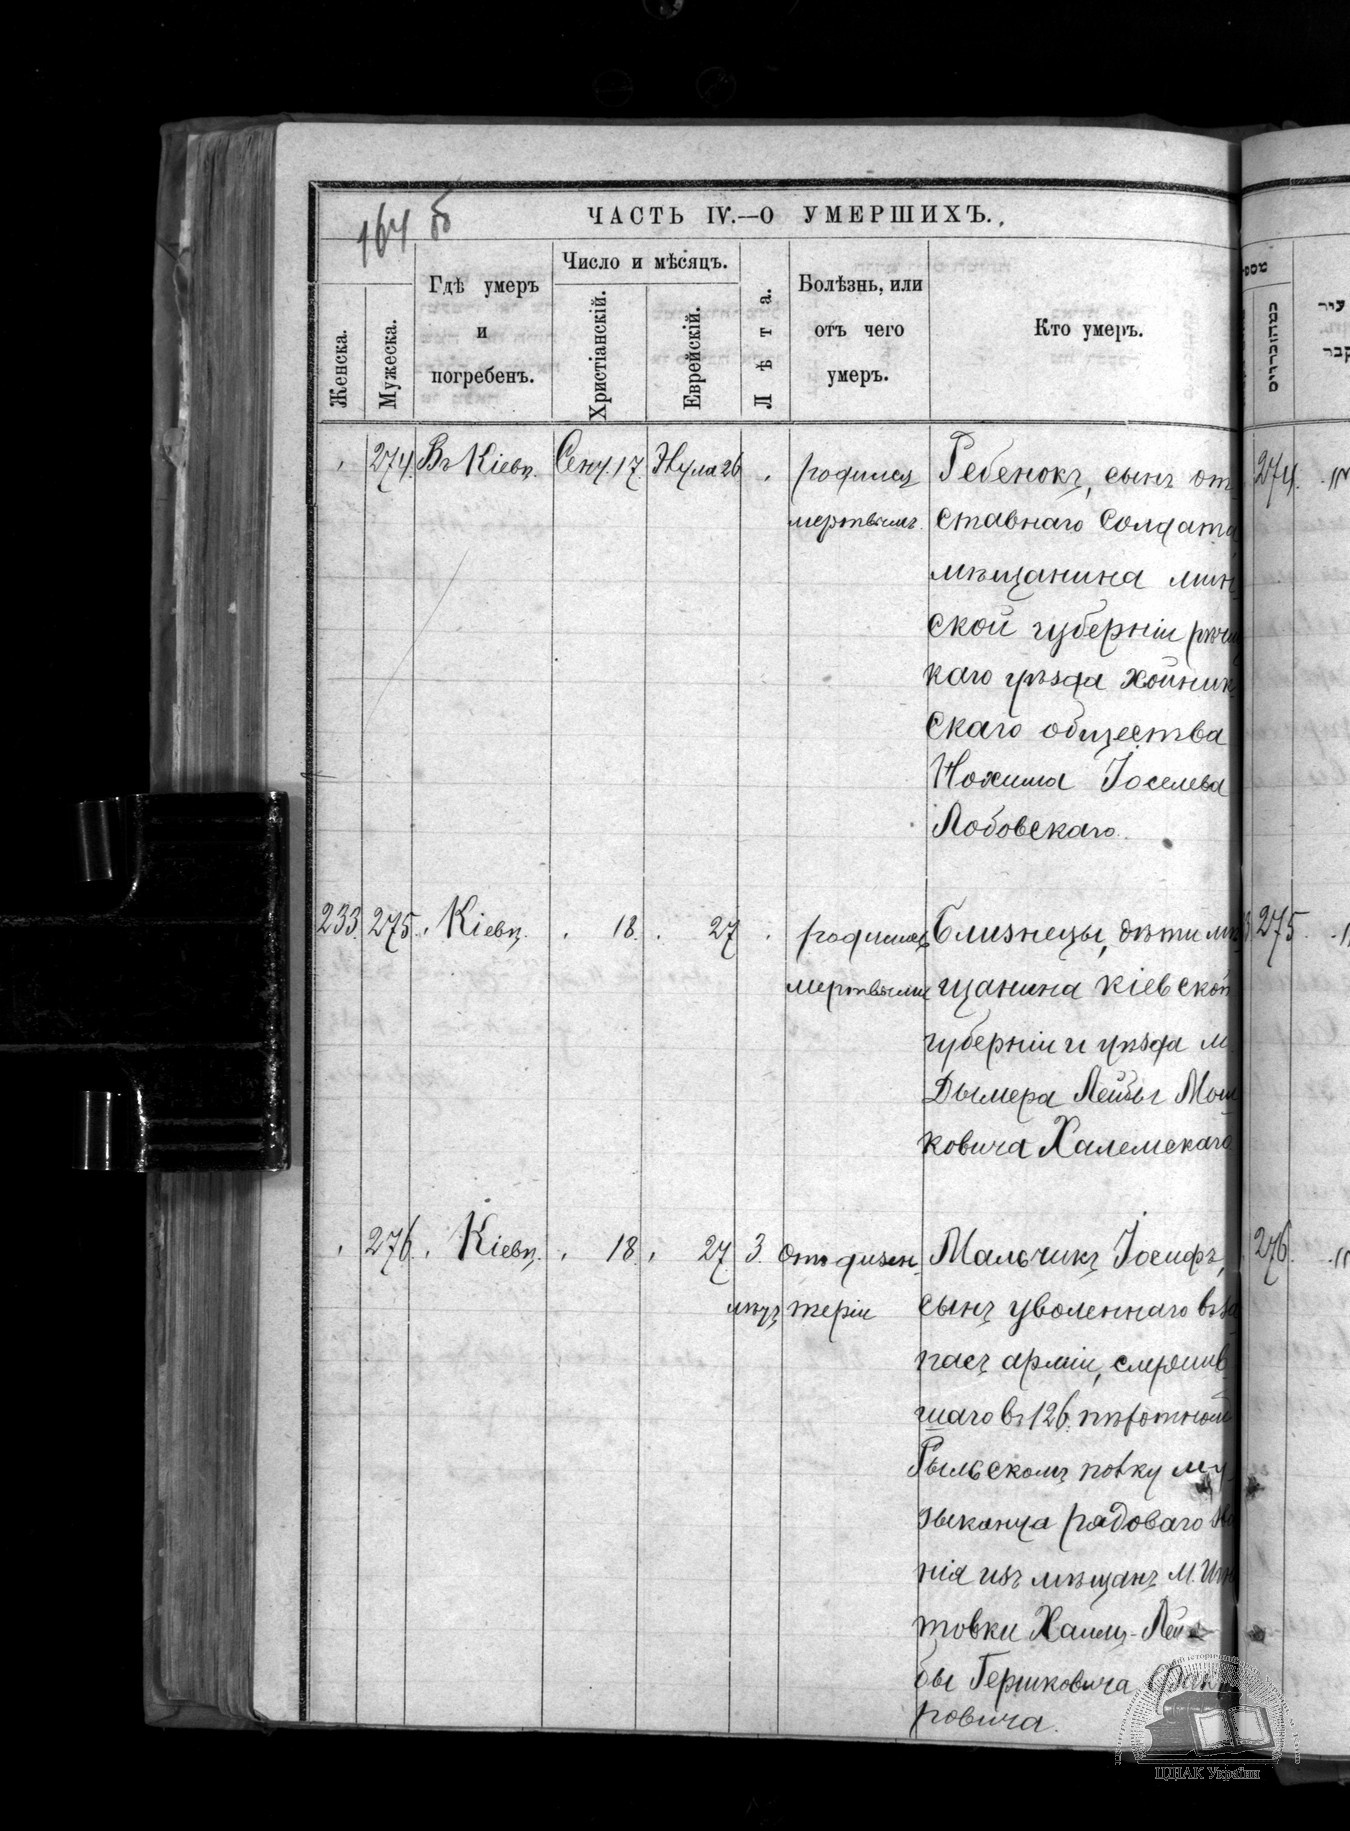 164 б
ЧАСТЬ IV.—О УМЕРШИХЪ.
Женска.
Мужеска.
Гдѣ умеръ
и
погребенъ.
Число и мѣсяцъ.
Христіанскій.
Еврейскій.
Лѣта.
Болѣзнь, или
отъ чего
умеръ.
Кто умеръ.
274. Въ Кіевѣ. Сент. 17. Элула 26 родился Ребенокъ, сынъ от-
мертвымъ. ставнаго солдата
мѣщанина мин-
ской губерніи рѣчиц
каго уѣзда Хойник-
скаго общества
Нохима Іоселева
Лобовскаго.
233. 275. Кіевѣ. 18. 27 родились Близнецы, дѣти мѣ
мертвыми щанина Кіевской
губерніи и уѣзда м.
Дымера Лейбы Мош
ковича Халемскаго
276. Кіевѣ. 18. 27 3. отъ дизен- Мальчикъ Іосифъ,
мѣц. теріи сынъ уволеннаго въ за
пасъ арміи, служив
шаго въ 126. пѣхотномъ
Рыльскомъ полку му-
зыканта рядоваго зва
нія изъ мѣщанъ м.
товки Хаимъ-Лей-
бы Гершковича
ровича.
274.
275
276.
ЦДІАК України